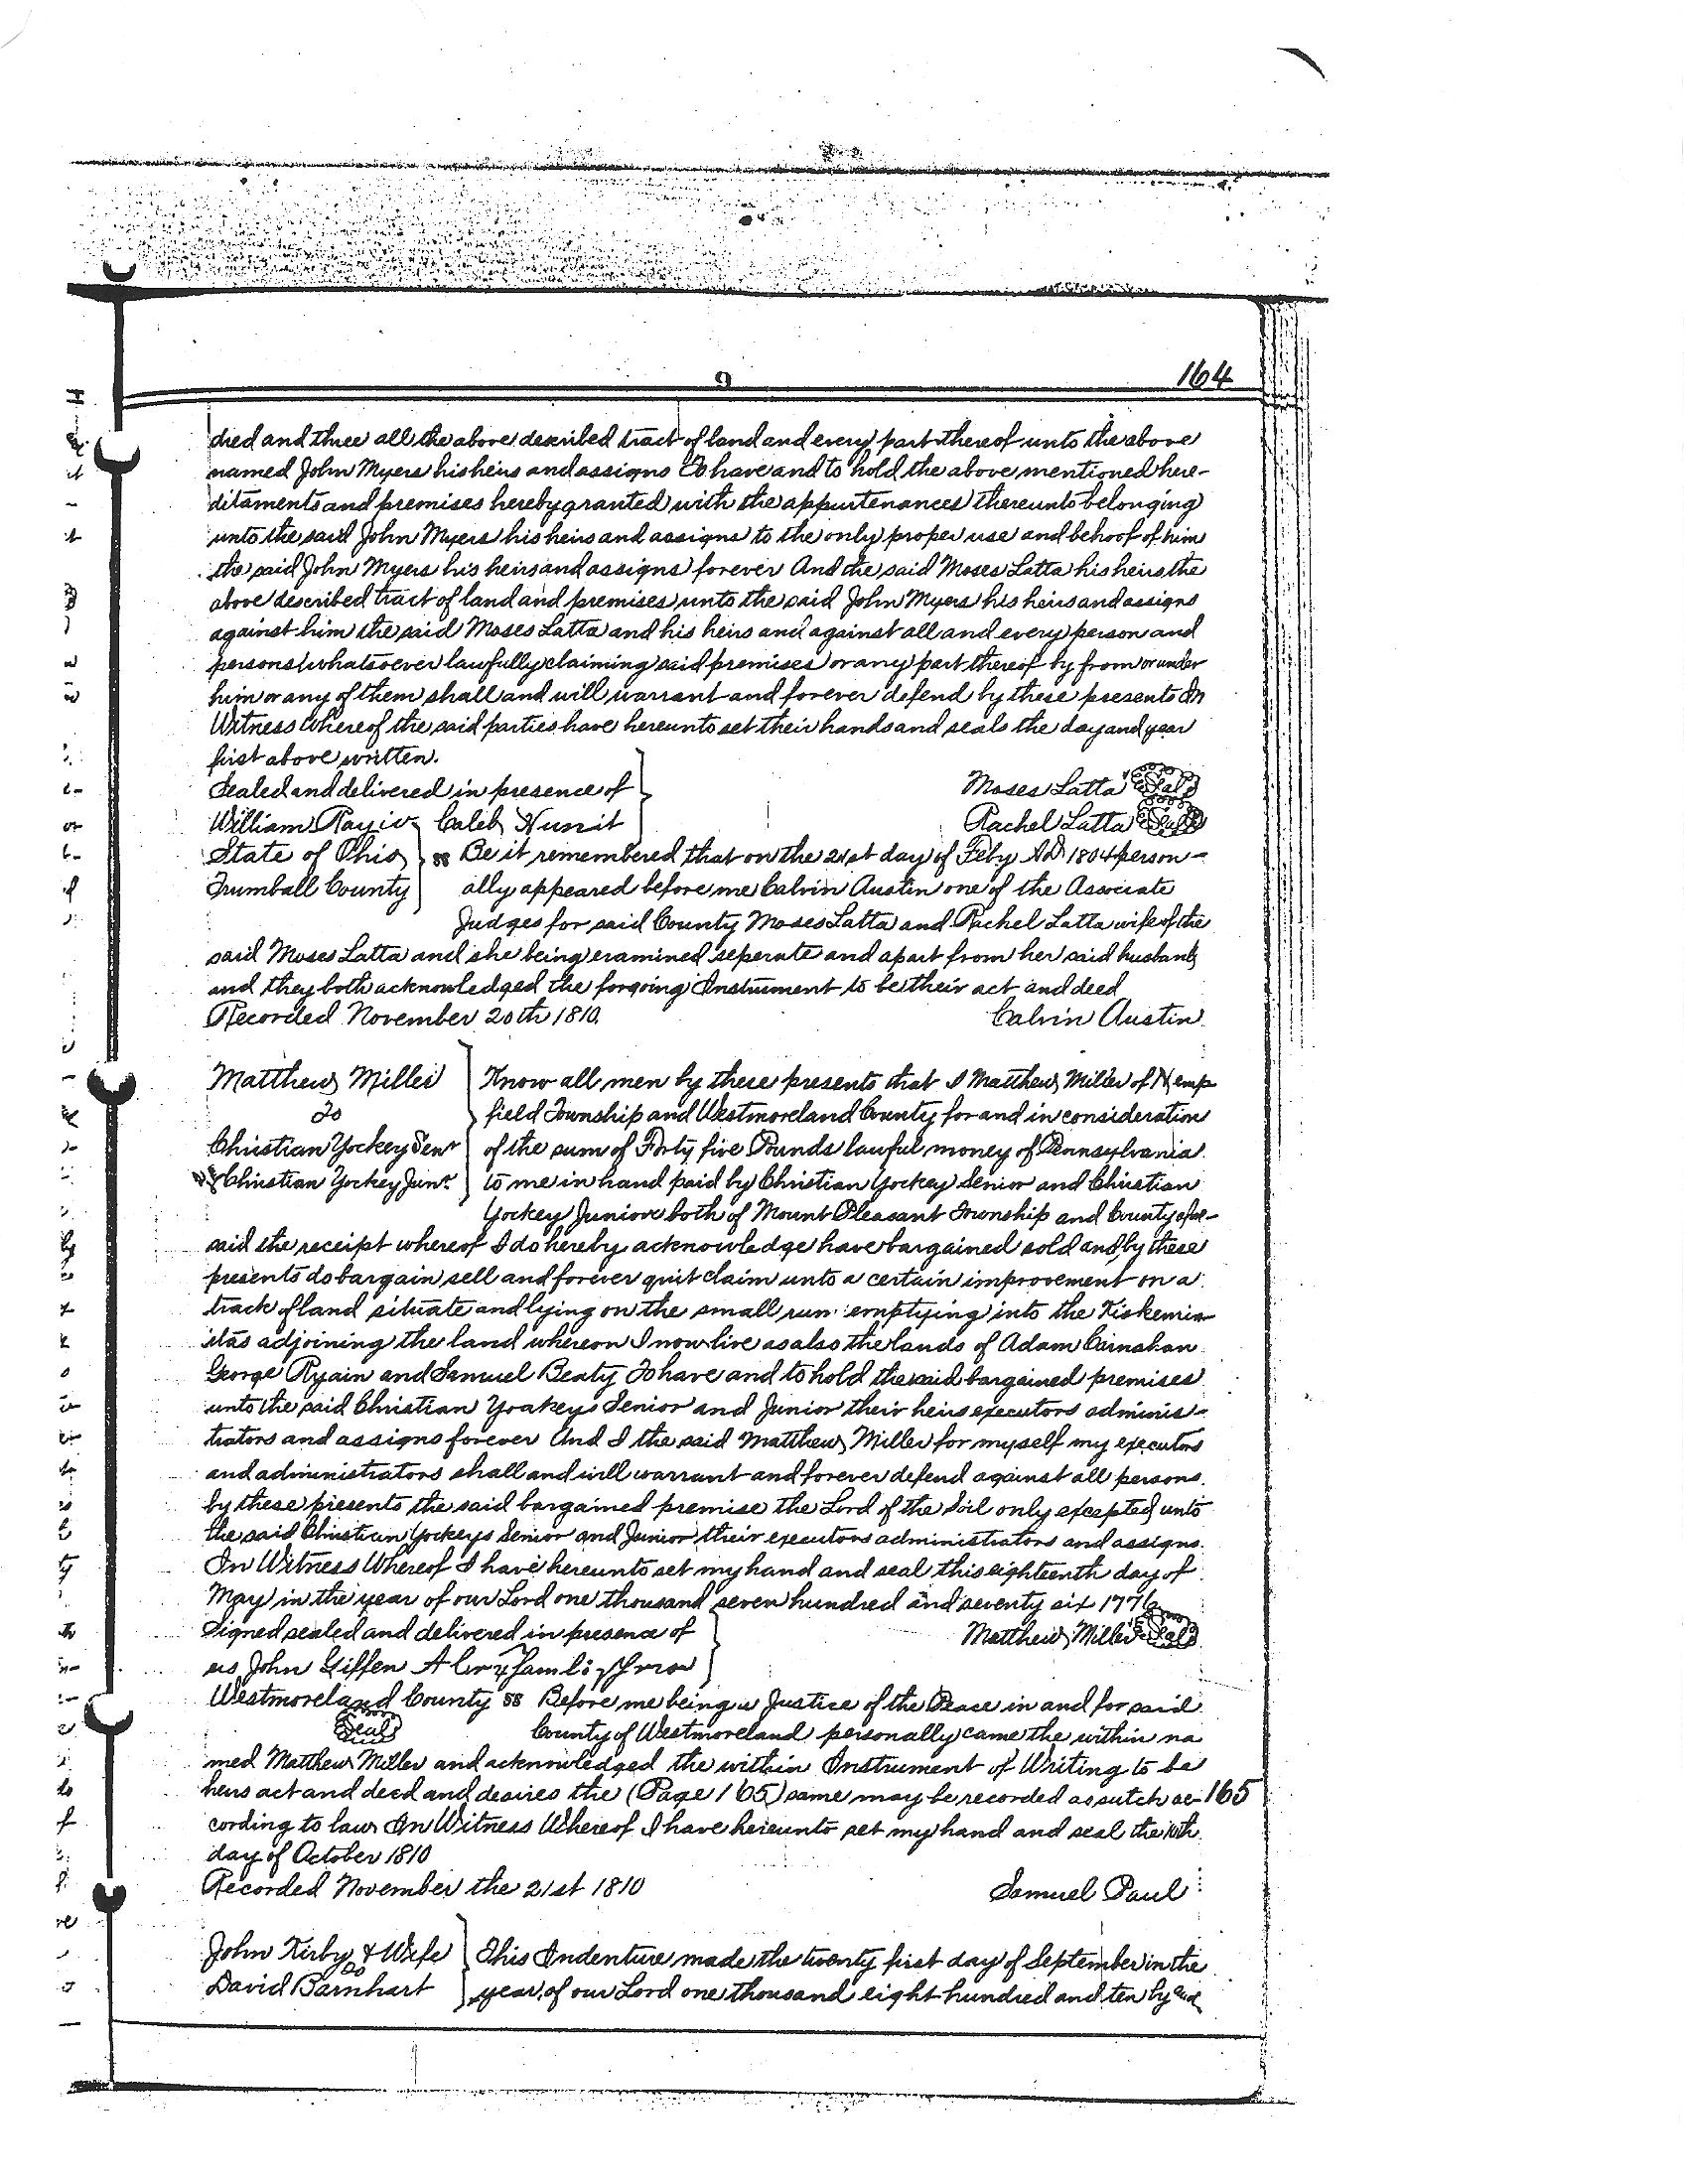 9
164
dred and three all the above described tract of land and every part thereof unto the above
named John Myers his heirs and assigns To have and to hold the above mentioned here-
ditaments and premises hereby granted with the appurtenances thereunto belonging
unto the said John Myers his heirs and assigns to the only proper use and behoof of him
the said John Myers his heirs and assigns forever And the said Moses Latta his heirs the
above described tract of land and premises unto the said John Myers his heirs and assigns
against him the said Moses Latta and his heirs and against all and every person and
persons whatsoever lawfully claiming said premises or any part thereof by from or under
him or any of them shall and will warrant and forever defend by these presents In
Witness Whereof the said parties have hereunto set their hands and seals the day and year
first above written.
Sealed and delivered in presence of Moses Latta Seal
William Caleb Rachel Latta Seal
State of Ohio ss Be it remembered that on the 21st day of Feby AD 1804 person-
Trumball County ally appeared before me Calvin Austin one of the Associate
Judges for said County Moses Latta and Rachel Latta wife of the
said Moses Latta and she being examined seperate and apart from her said husband
and they both acknowledged the forgoing Instrument to be their act and deed
Recorded November 20th 1810. Calvin Austin
Matthew Miller Know all men by these presents that I Matthew Miller of Hemp
To field Township and Westmoreland County for and in consideration
Christian Yockey Senr of the sum of Forty five Pounds lawful money of Pennsylvania
& Christian Yockey Junr. to me in hand paid by Christian Yockey Senior and Christian
Yockey Juniore both of Mount Pleasant Township and County afore-
said the receipt whereof I do hereby acknowledge have bargained sold and by these
presents do bargain sell and forever quit claim unto a certain improvement on a
track of land situate and lying on the small run emptying into the Kiskemin
itas adjoining the land whereon I now live as also the lands of Adam Cainahan
George Ryain and Samuel Beaty To have and to hold the said bargained premises
unto the said Christian Yoakeys Senior and Junior their heirs executors adminis-
trators and assigns forever And I the said Matthew Miller for myself my executors
and administrators shall and will warrant and forever defend against all persons
by these presents the said bargained premise the Lord of the Soil only excepted unto
the said Christian Yockeys Senior and Junior their executors administrators and assigns.
In Witness Whereof I have hereunto set my hand and seal this eighteenth day of
May in the year of our Lord one thousand seven hundred and seventy six 1776
Signed sealed and delivered in presence of Matthew Miller Seal
us John Giffen
Westmoreland County ss Before me being a Justice of the Peace in and for said
Seal County of Westmoreland personally came the within na
med Matthew Miller and acknowledged the within Instrument of Writing to be
hers act and deed and desires the (Page 165) same may be recorded as sutch ac- 165
cording to law In Witness Whereof I have hereunto set my hand and seal the
day of October 1810
Recorded November the 21st 1810 Samuel Paul
John Kirby & Wife This Indenture made the twenty first day of September in the
To
David Barnhart year of our Lord one thousand eight hundred and ten by and